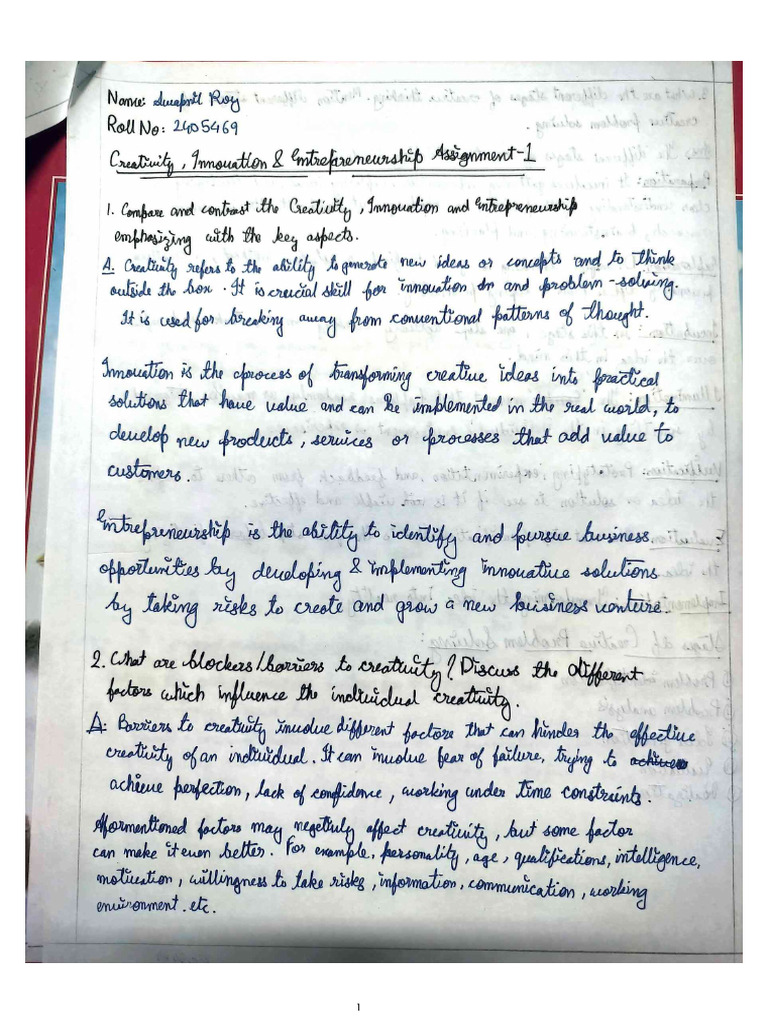 Name: Swapnil Roy
Roll No: 2405469
Creativity, Innovation & Entrepreneurship Assignment-1
1. Compare and contrast the Creativity, Innovation and Entrepreneurship
emphasizing with the key aspects.
A. Creativity refers to the ability to generate new ideas or concepts and to think
outside the box. It is crucial skill for innovation and problem-solving.
It is used for breaking away from conventional patterns of thought.
Innovation is the process of transforming creative ideas into practical
solutions that have value and can be implemented in the real world, to
develop new products, services or processes that add value to
customers.
Entrepreneurship is the ability to identify and pursue business
opportunities by developing & implementing innovative solutions
by taking risks to create and grow a new business venture.
2. What are blockers/barriers to creativity? Discuss the different
factors which influence the individual creativity.
A: Barriers to creativity involve different factors that can hinder the effective
creativity of an individual. It can involve fear of failure, trying to achieve
achieve perfection, lack of confidence, working under time constraints.
Aformentioned factors may negetivly affect creativity, but some factor
can make it even better. For example, personality, age, qualifications, intelligence,
motivation, willingness to take risks, information, communication, working
environment. etc.
1